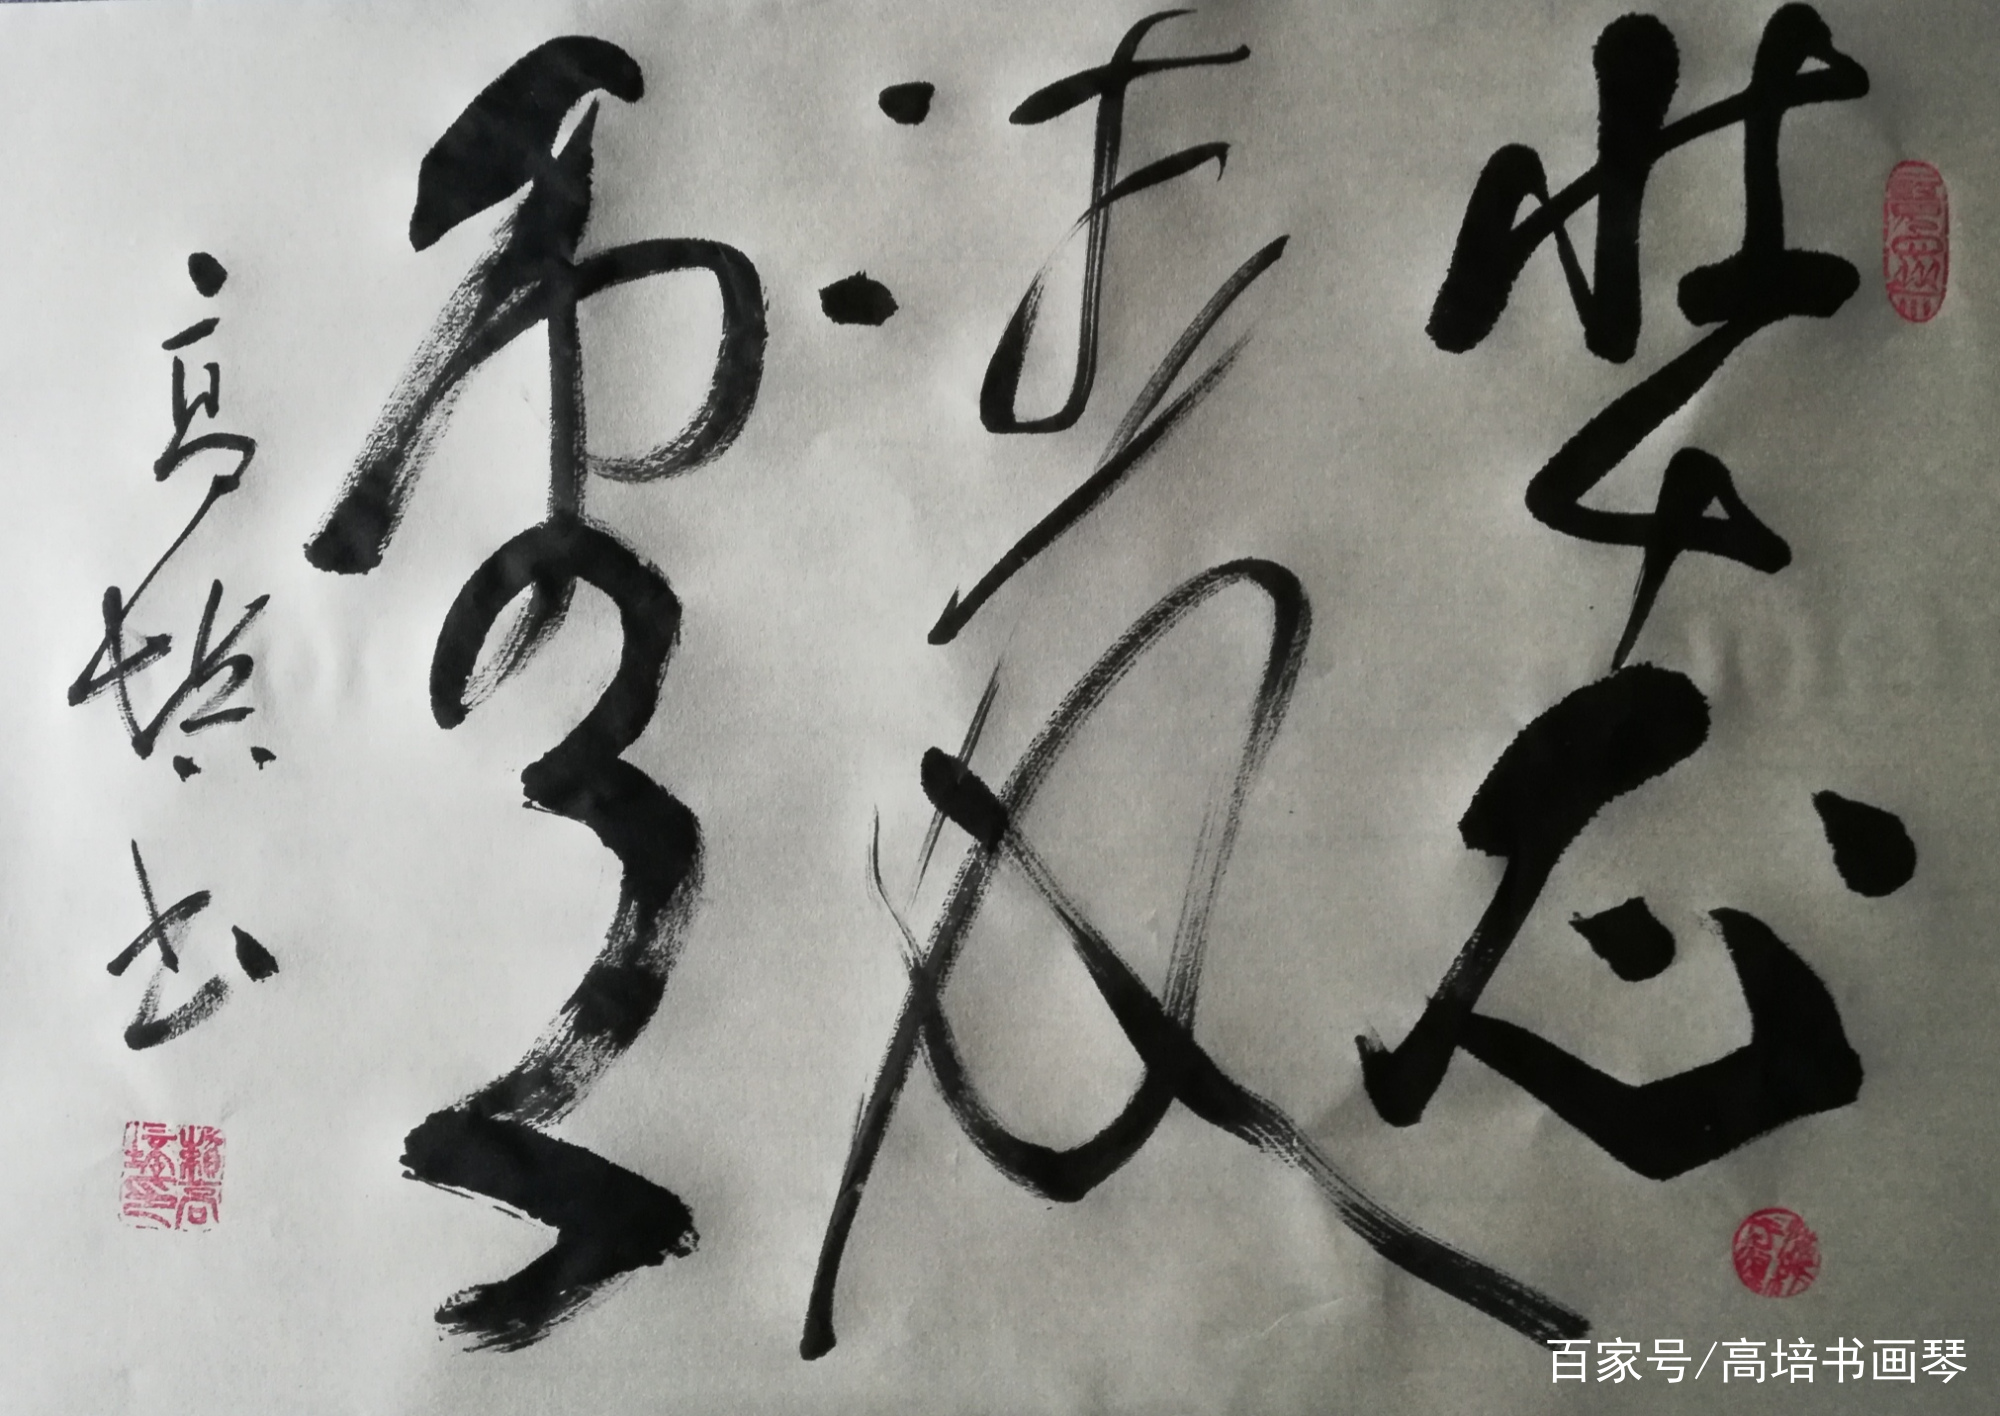 壮志
凌
雲
高书
百家号/高培书画琴